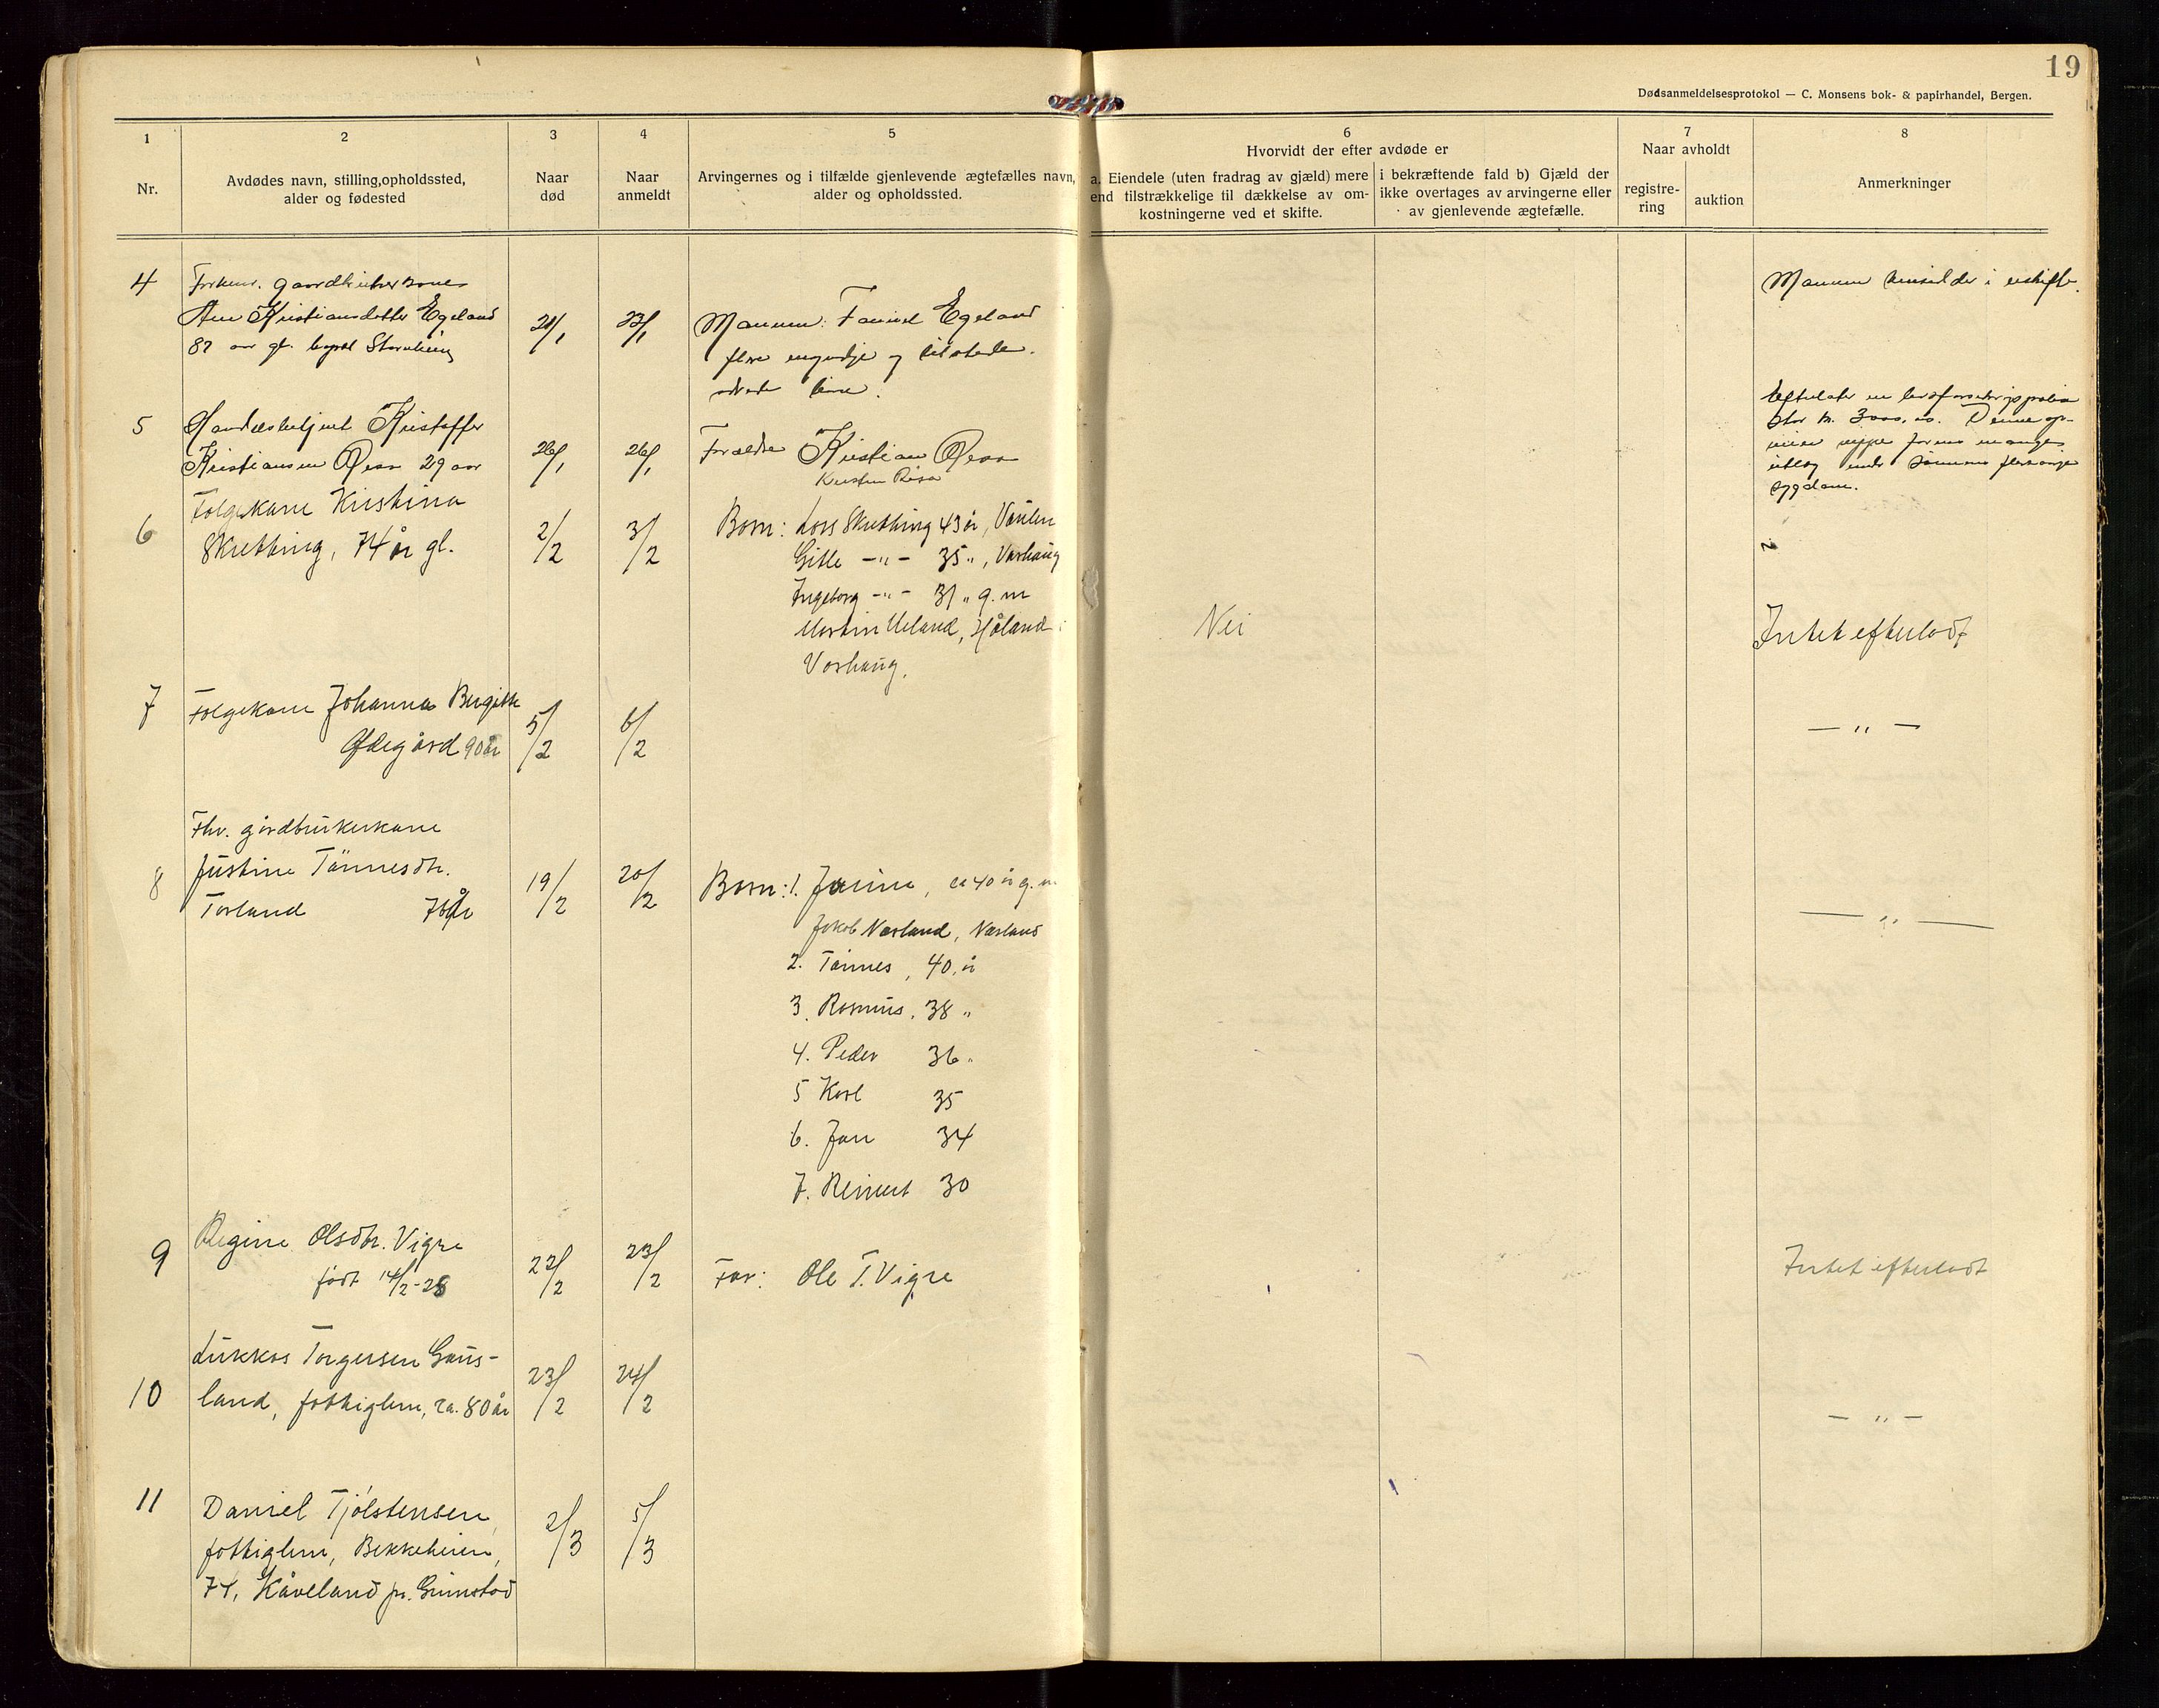 19
Dødsanmeldelsesprotokol — C. Monsens bok- & papirhandel, Bergen.
1
Nr.
2
Avdødes navn, stilling, opholdssted,
alder og fødested
3
Naar
død
4
Naar
anmeldt
5
Arvingernes og i tilfælde gjenlevende ægtefælles navn,
alder og opholdssted.
6
Hvorvidt der efter avdøde er
a. Eiendele (uten fradrag av gjæld) mere
end tilstrækkelige til dækkelse av om-
kostningerne ved et skifte.
i bekræftende fald b) Gjæld der
ikke overtages av arvingerne eller
av gjenlevende ægtefælle.
7
Naar avholdt
registre-
ring
auktion
8
Anmerkninger
4
Forhenv. gaardbrukerkone
Ane Kristiansdatter Egeland
87 aar gl.
21/1
23/1
Mannen: Egeland
flere myndige og tilstede
Mannen hensidder i uskifte.
5
Kristoffer
Kristiansen Risa 29 aar
26/1
26/1
Forældre Kristian Risa
Kirsten Risa
Efterlater en livsforsikringspolise
stor kr. 3000,00. Denne op-
veier neppe farens mange
utlæg under sønnens fleraarige
sygdom.
6
Folgekone Kristina
Skretting, 74 år gl.
2/2
3/2
Born: Lars Skretting 43 år, Vaulen
Gitle —"— 35 ", Varhaug
Ingeborg —"— 31 " g. m
Martin Ueland, Håland
Varhaug.
Nei
Intet efterladt
7
Folgekone Johanna Bergitte
Ødegård 90 år
5/2
6/2
— " —
Fhv. gårdbrukerkone
8
Justine Tönnesdtr.
Torland 76 år
19/2
20/2
Born: 1. Janine, ca 40 år g. m.
Jakob Nærland, Nærland
2. Tönnes, 40 år
3. Rasmus, 38 "
4. Peder 36 "
5 Karl 35
6. Jan 34
7. Reinert 30
— " —
9
Regine Olsdtr. Vigre
født 14/2-28
22/2
23/2
Far: Ole T. Vigre
Intet efterladt
10
Lukkas Torgersen Gaus-
land, fattiglem, ca. 80 år
23/2
24/2
— " —
11
Daniel Tjølstensen,
fattiglem, Bekkeheien,
74, Kåveland pr. Grimstad
2/3
5/3